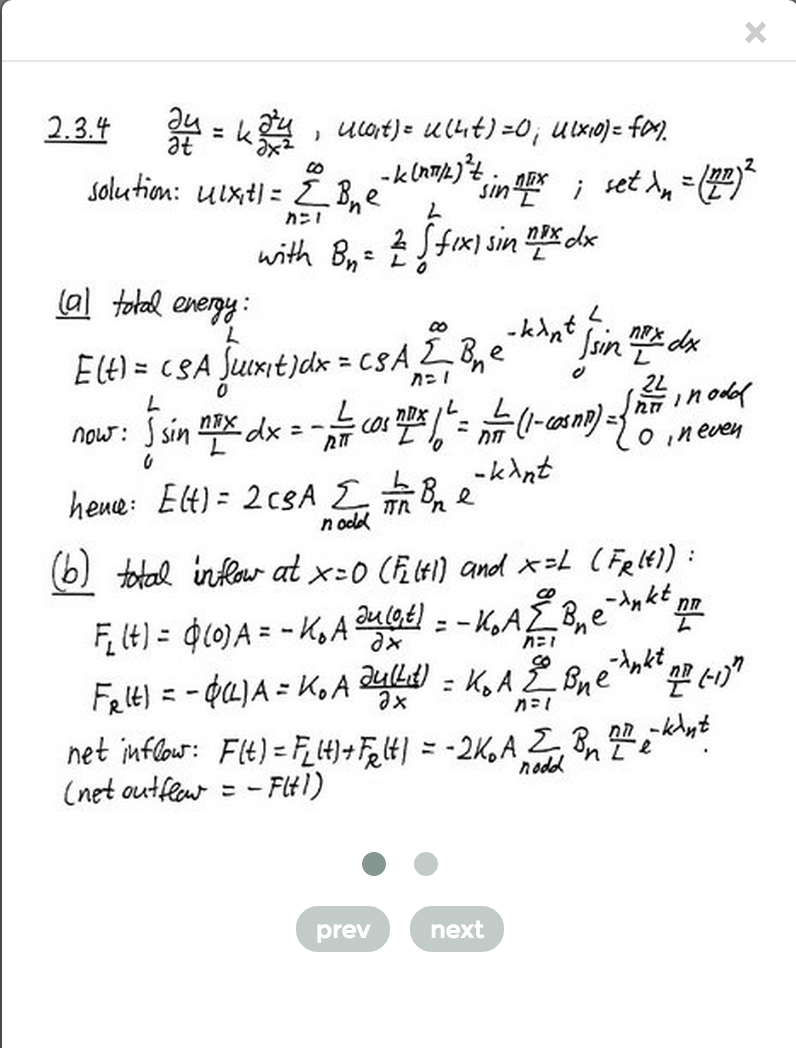 ×
2.3.4 ∂u/∂t = k ∂²u/∂x² , u(0,t) = u(L,t) = 0; u(x,0) = f(x).
solution: u(x,t) = ∑_{n=1}^{∞} B_n e^{-k(nπ/L)²t} sin nπx/L ; set λ_n = (nπ/L)²
with B_n = 2/L ∫_0^L f(x) sin nπx/L dx
(a) total energy:
E(t) = cρA ∫_0^L u(x,t) dx = cρA ∑_{n=1}^{∞} B_n e^{-kλ_n t} ∫_0^L sin nπx/L dx
now: ∫_0^L sin nπx/L dx = - L/nπ cos nπx/L |_0^L = L/nπ (1-cos nπ) = { 2L/nπ , n odd
0 , n even
hence: E(t) = 2cρA ∑_{n odd} L/πn B_n e^{-kλ_n t}
(b) total inflow at x=0 (F_L(t)) and x=L (F_R(t)) :
F_L(t) = ϕ(0)A = -K₀A ∂u(0,t)/∂x = -K₀A ∑_{n=1}^{∞} B_n e^{-λ_n kt} nπ/L
F_R(t) = -ϕ(L)A = K₀A ∂u(L,t)/∂x = K₀A ∑_{n=1}^{∞} B_n e^{-λ_n kt} nπ/L (-1)^n
net inflow: F(t) = F_L(t) + F_R(t) = -2K₀A ∑_{n odd} B_n nπ/L e^{-kλ_n t}.
(net outflow = -F(t))
prev next